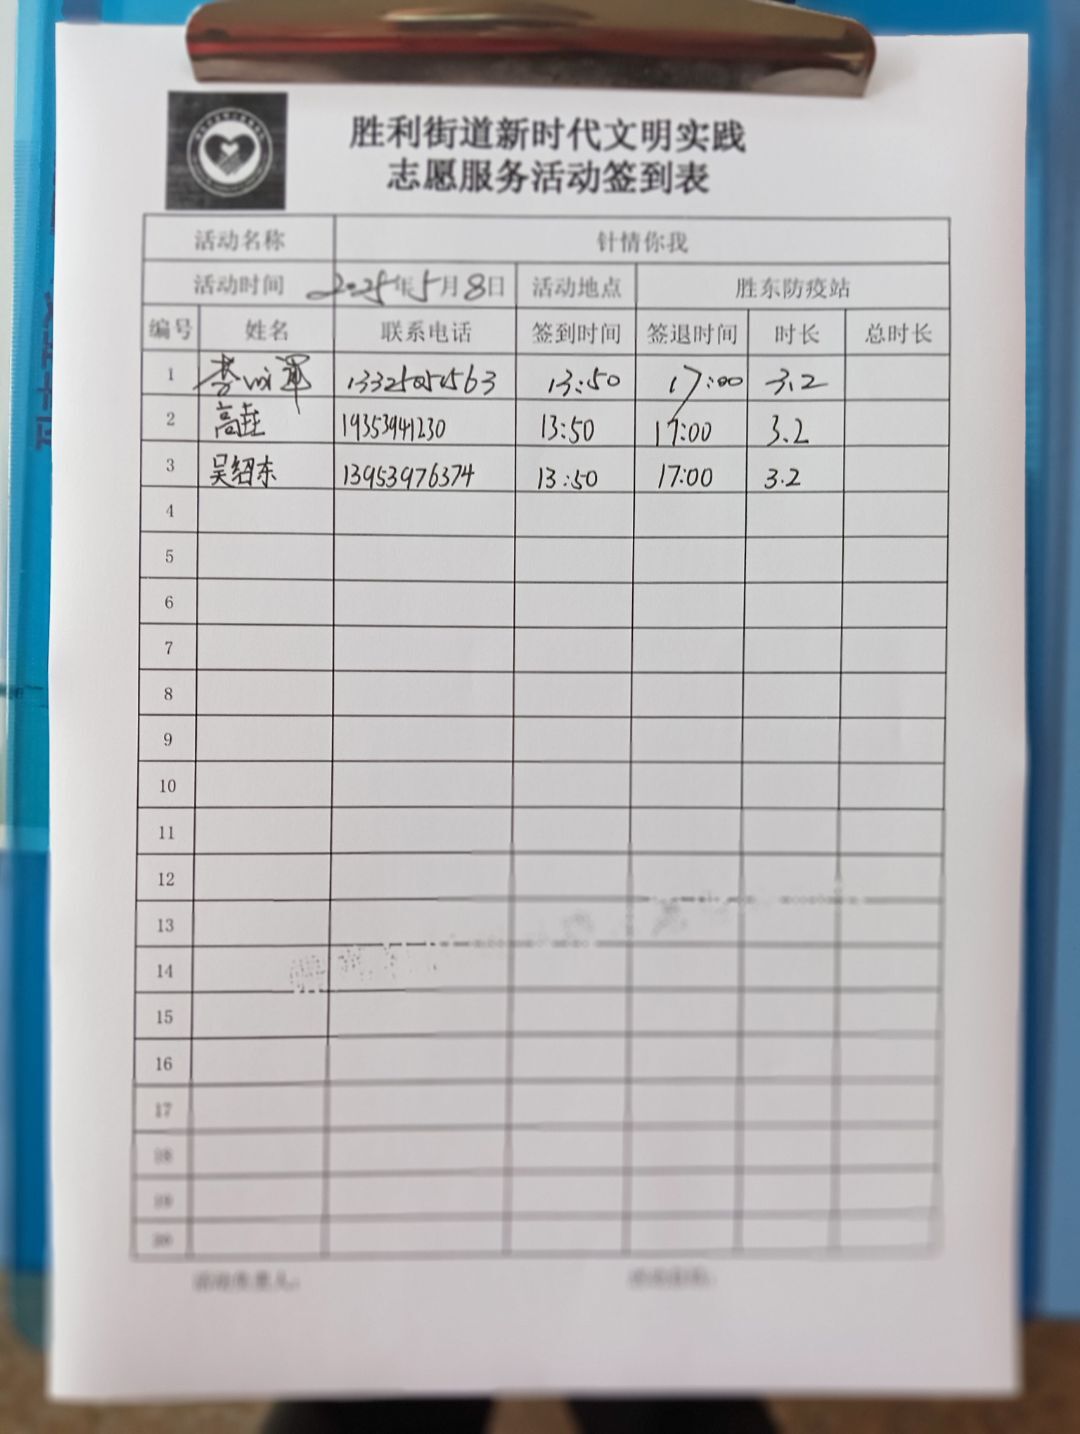 胜利街道新时代文明实践
志愿服务活动签到表
活动名称 针情你我
活动时间 2025年5月8日 活动地点 胜东防疫站
编号 姓名 联系电话 签到时间 签退时间 时长 总时长
1 李 13325051563 13:50 17:00 3.2
2 高垚 19353941230 13:50 17:00 3.2
3 吴绍东 13953976374 13:50 17:00 3.2
4
5
6
7
8
9
10
11
12
13
14
15
16
17
18
19
20
活动负责人: